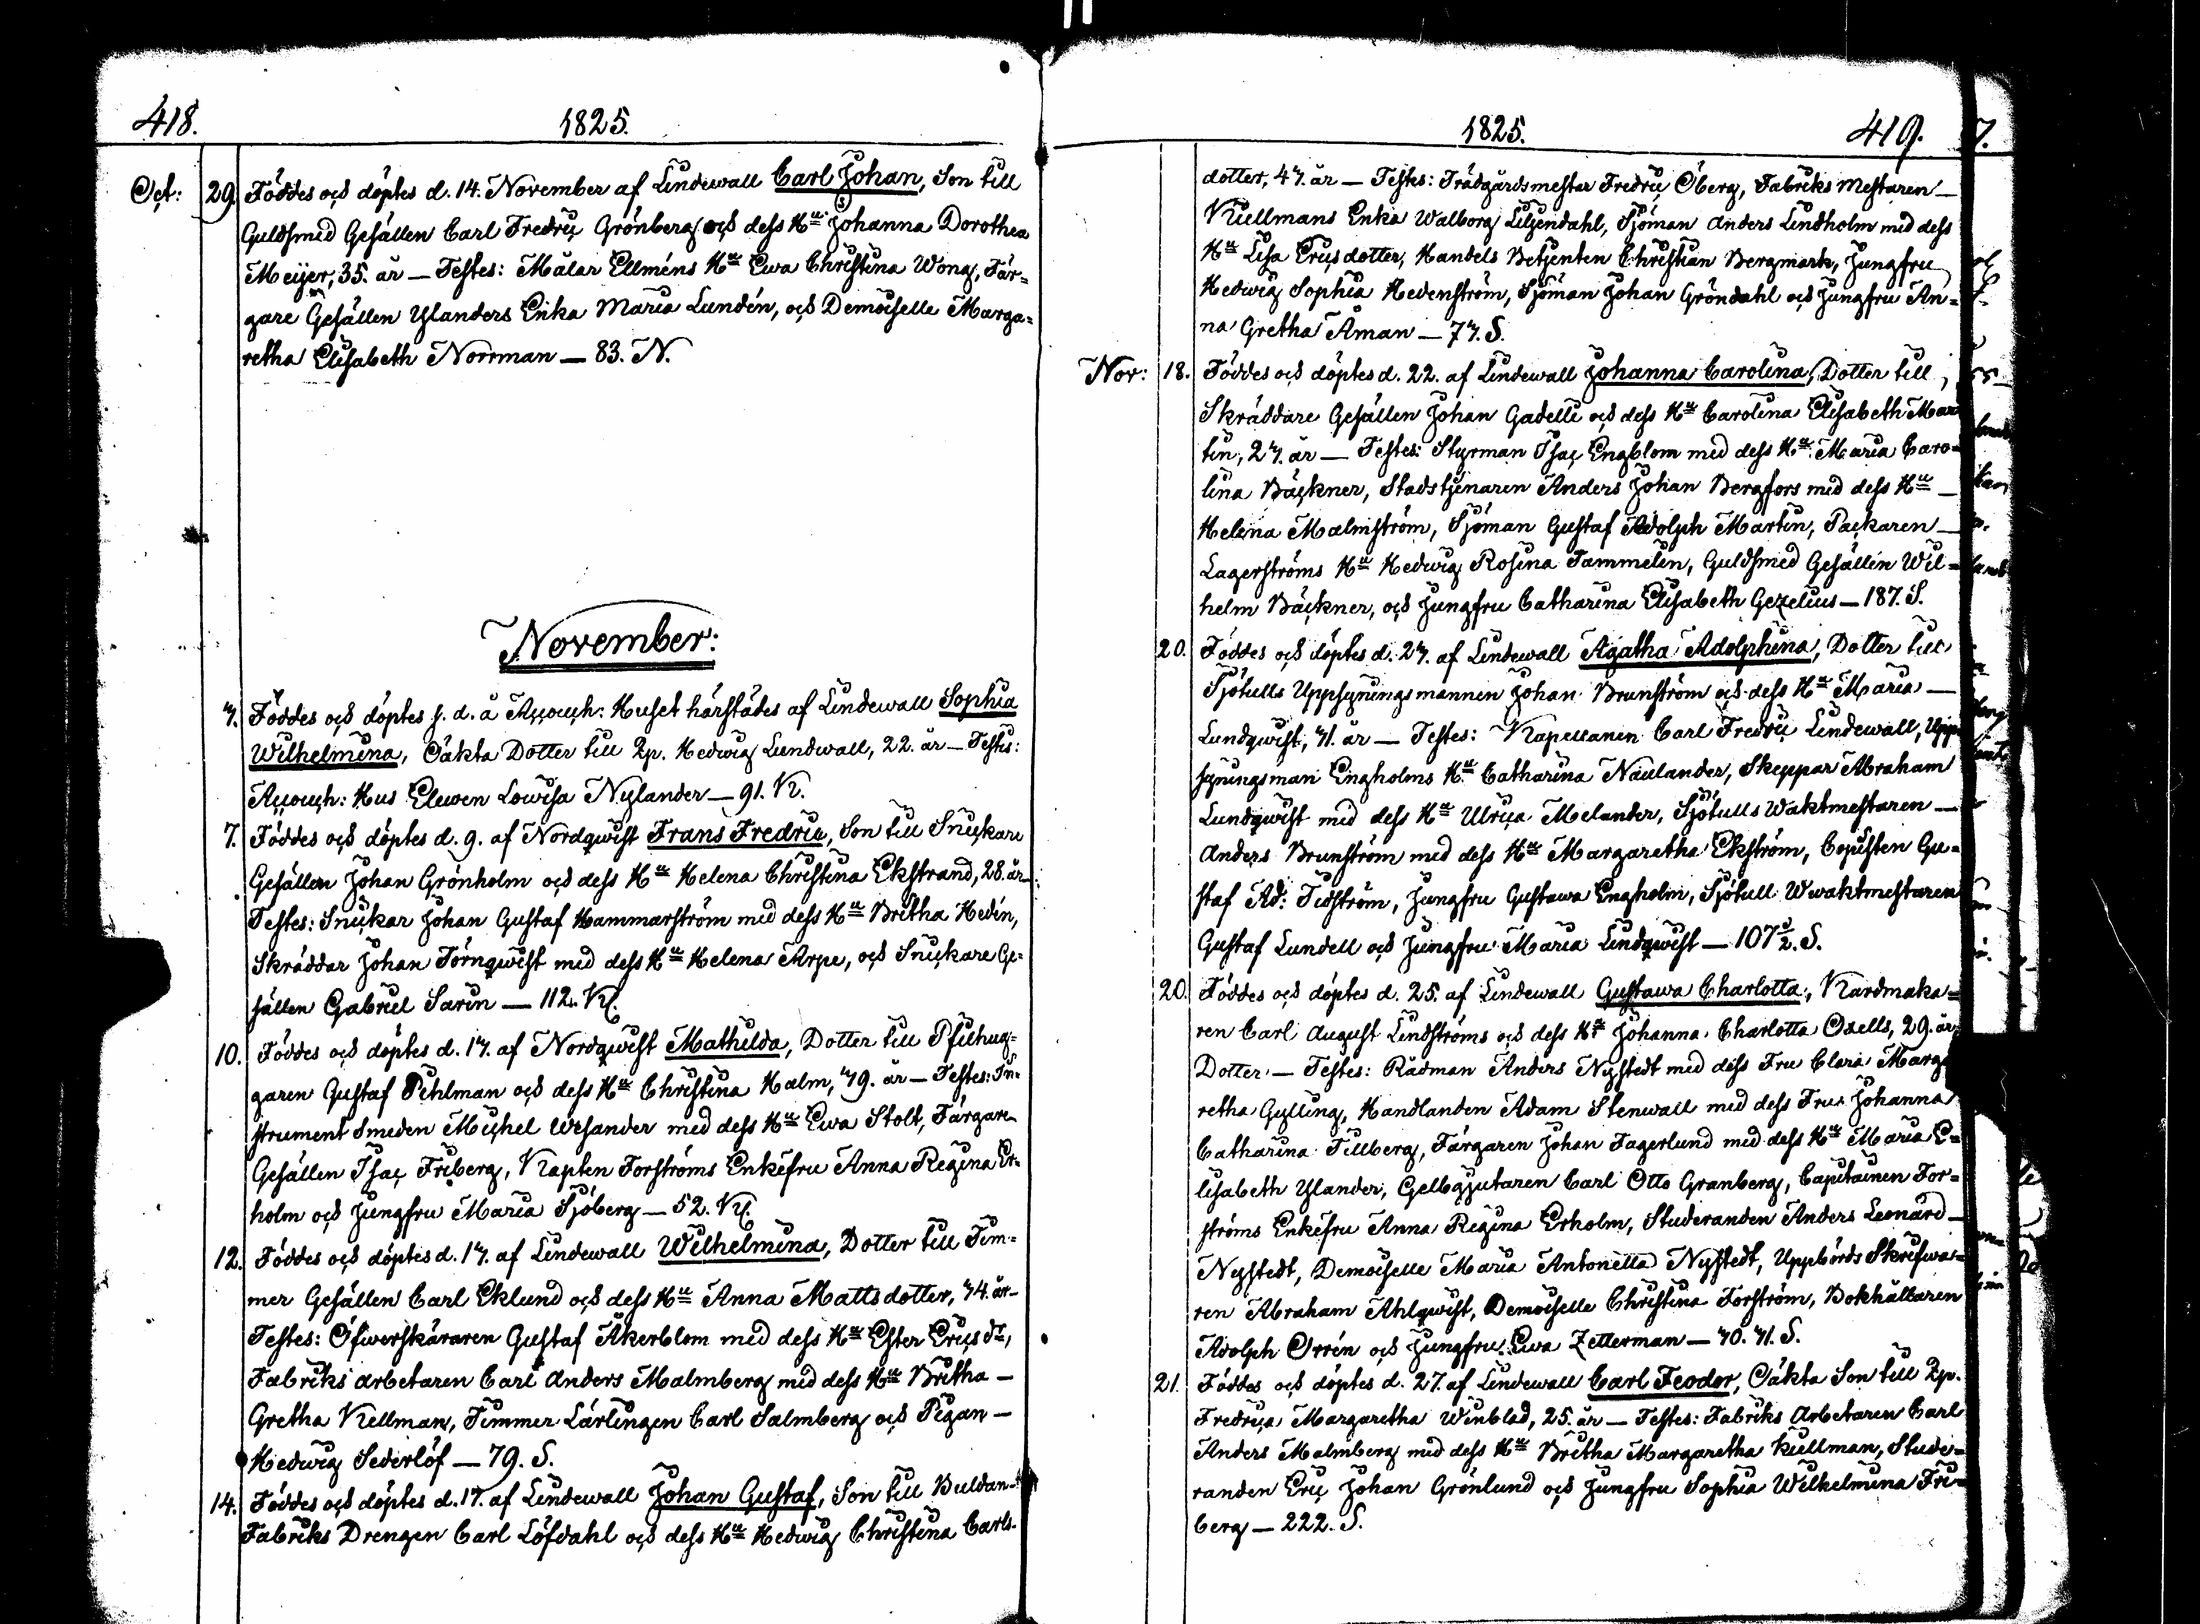 418.
1825.
Oct: 29. Föddes och döptes d. 14. November af Lindewall Carl Johan, Son till
Guldsmed Gesällen Carl Fredric Grönberg och dess Hu Johanna Dorothea
Meijer, 35. år — Testes: Målar Ellméns Hu Ewa Christina Wong, Fär=
gare Gesällen Ylanders Enka Maria Lundén, och Demoiselle Marga=
retha Elisabeth Norrman — 83. N.
November:
4. Föddes och döptes s. d. å Accouch: Huset härstädes af Lindewall Sophia
Wilhelmina, Oäkta Dotter till Qp. Hedwig Lundwall, 22. år — Testis:
Accouch: Hus Elewen Lowisa Nylander — 91. K.
7. Föddes och döptes d. 9. af Nordqwist Frans Fredric, Son till Snickare
Gesällen Johan Grönholm och dess Hu Helena Christina Ekstrand, 28. år —
Testes: Snickar Johan Gustaf Hammarström med dess Hu Britha Hedén,
Skräddar Johan Törnqwist med dess Hu Helena Arpe, och Snickare Ge=
sällen Gabriel Sarin — 112. Kl.
10. Föddes och döptes d. 17. af Nordqwist Mathilda, Dotter till Pfilhug=
garen Gustaf Pihlman och dess Hu Christina Halm, 49. år — Testes: In=
strument Smeden Michel Wesander med dess Hu Ewa Stolt, Färgare
Gesällen Isac Friberg, Kapten Forströms Enkefru Anna Regina Er=
holm och Jungfru Maria Sjöberg — 52. Kl.
12. Föddes och döptes d. 17. af Lindewall Wilhelmina, Dotter till Tim=
mer Gesällen Carl Eklund och dess Hu Anna Mattsdotter, 44. år —
Testes: Öfwerskäraren Gustaf Åkerblom med dess Hu Ester Ericsdr,
Fabriks arbetaren Carl Anders Malmberg med dess Hu Britha —
Gretha Kellman, Timmer Lärlingen Carl Salmberg och Pigan —
Hedwig Sederlöf — 79. S.
14. Föddes och döptes d. 17. af Lindewall Johan Gustaf, Son till Buldan=
Fabriks Drengen Carl Löfdahl och dess Hu Hedwig Christina Carls=
1825.
419.
dotter, 47. år — Testes: Trädgårdsmestar Fredric Öberg, Fabriks mestaren —
Kullmans Enka Walborg Liljendahl, Sjöman Anders Lindholm med dess
Hu Lisa Ericsdotter, Handels Betjenten Christian Bergmark, Jungfru
Hedwig Sophia Hedenström, Sjöman Johan Gröndahl och Jungfru An=
na Gretha Åman — 77. S.
Nov: 18. Föddes och döptes d. 22. af Lindewall Johanna Carolina, Dotter till
Skräddare Gesällen Johan Gadelli och dess Hu Carolina Elisabeth Mar
tin, 27. år — Testes: Styrman Isac Engblom med dess Hu Maria Caro=
lina Bäckner, Stadstjenaren Anders Johan Bergfors med dess Hu —
Helena Malmström, Sjöman Gustaf Adolph Martin, Packaren —
Lagerströms Hu Hedwig Rosina Tammelin, Guldsmed Gesällen Wil=
helm Bäckner, och Jungfru Catharina Elisabeth Gezelius — 187. S.
20. Föddes och döptes d. 27. af Lindewall Agatha Adolphina, Dotter till
Sjötulls Uppsyningsmannen Johan Brunström och dess Hu Maria —
Lundqwist, 41. år — Testes: Kapellanen Carl Fredric Lindewall, Upp
syningsman Engholms Hu Catharina Naulander, Skeppar Abraham
Lundqwist med dess Hu Ulrica Melander, Sjötulls Waktmestaren —
Anders Brunström med dess Hu Margaretha Ekström, Copisten Gu=
staf Ad: Tidström, Jungfru Gustawa Engholm, Sjötull Wwaktmestaren
Gustaf Lundell och Jungfru Maria Lindqwist — 107 ½. S.
20. Föddes och döptes d. 25. af Lindewall Gustawa Charlotta, Kardmaka=
ren Carl August Lindströms och dess Hu Johanna Charlotta Oxells, 29. år,
Dotter — Testes: Rådman Anders Nystedt med dess Fru Clara Marga
retha Gylling, Handlanden Adam Stenwall med dess Fru Johanna
Catharina Tillberg, Färgaren Johan Fagerlund med dess Hu Maria E=
lisabeth Ylander, Gelbgjutaren Carl Otto Granberg, Capitainen For=
ströms Enkefru Anna Regina Erholm, Studeranden Anders Leonard —
Nystedt, Demoiselle Maria Antonetta Nystedt, Uppbörds Skrifwa=
ren Abraham Ahlqwist, Demoiselle Christina Forström, Bokhållaren
Adolph Orrén och Jungfru Ewa Zetterman — 40. 41. S.
21. Föddes och döptes d. 27. af Lindewall Carl Feodor, Oäkta Son till Qp.
Fredrica Margaretha Winblad, 25. år — Testes: Fabriks Arbetaren Carl
Anders Malmberg med dess Hu Britha Margaretha Kullman, Stude=
randen Eric Johan Grönlund och Jungfru Sophia Wilhelmina Fri=
berg — 222. S.